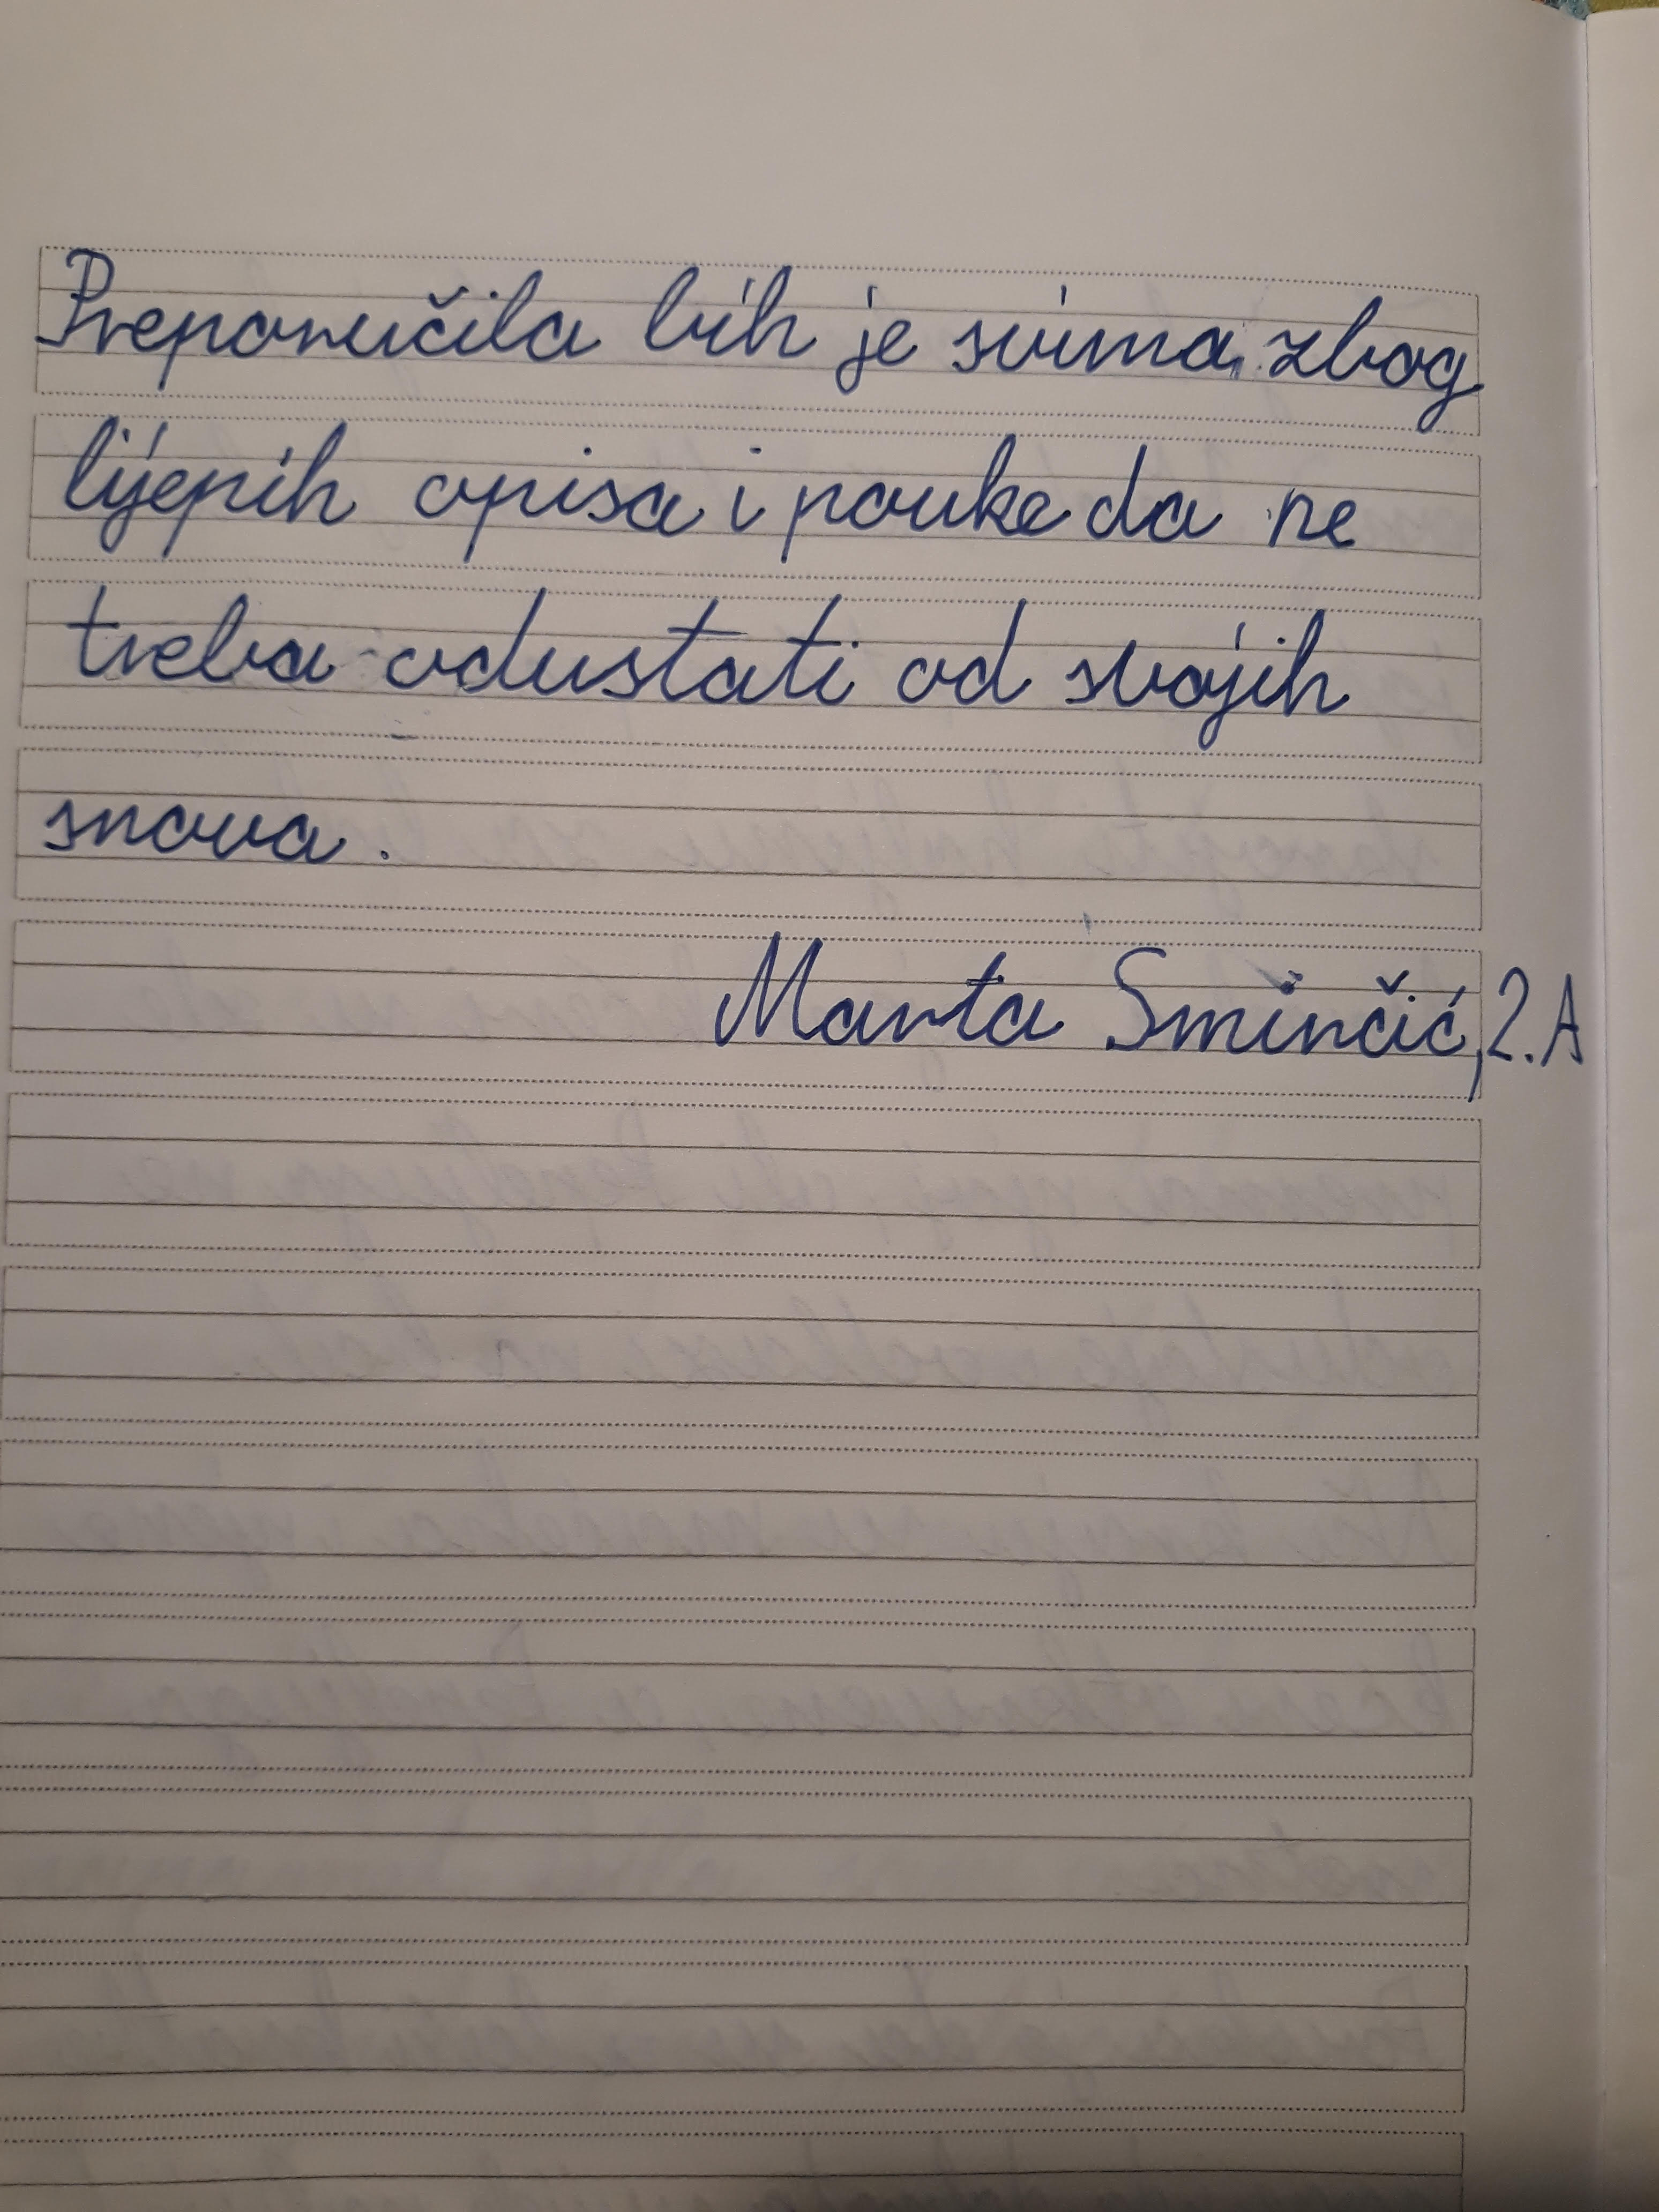 Preporučila bih je svima zbog
lijepih opisa i pouke da ne
treba odustati od svojih
snova.
Marta Sminčić, 2.A